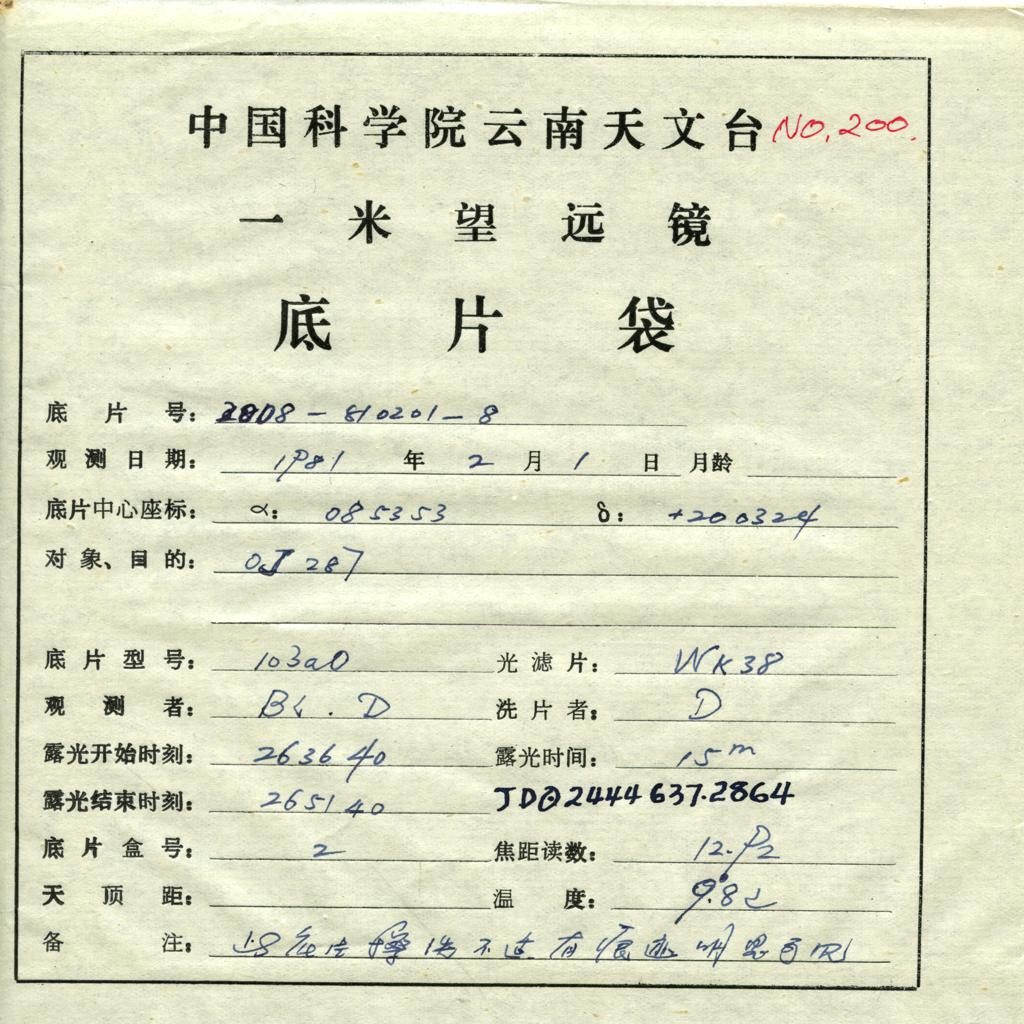 中国科学院云南天文台 NO.200.
一米望远镜
底片袋
底片号: 2808-810201-8
观测日期: 1981 年 2 月 1 日 月龄
底片中心座标: α: 085353 δ: +200324
对象、目的: OJ 287
底片型号: 103aO 光滤片: WK38
观测者: D 洗片者: D
露光开始时刻: 263640 露光时间: 15m
露光结束时刻: 265140 JD⊙2444637.2864
底片盒号: 2 焦距读数: 12.92
天顶距: 温度: 9.8
备注: 不过有痕迹明